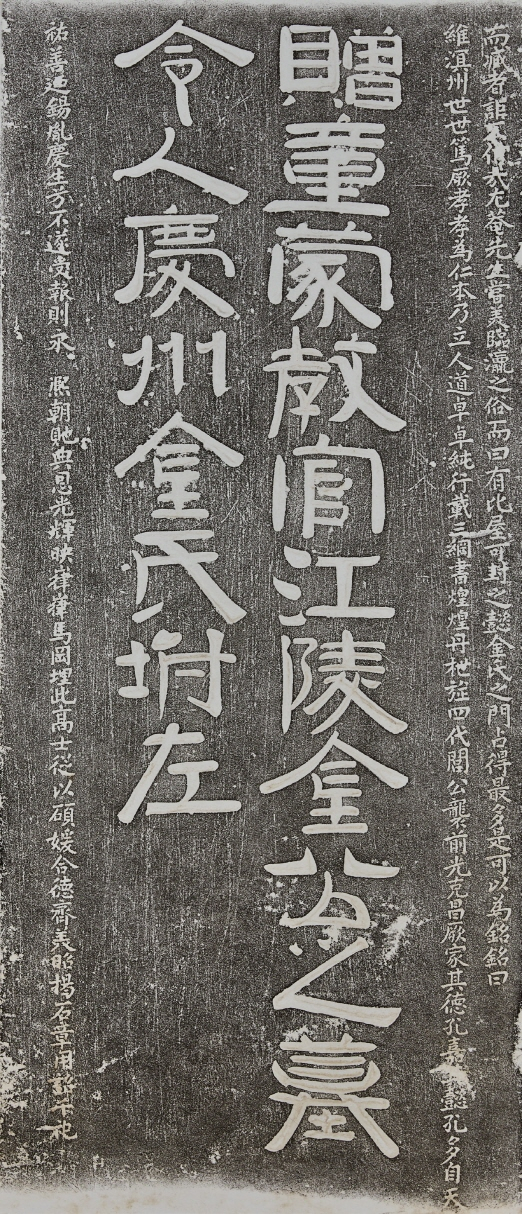 而臧者詎 尤菴先生嘗美臨瀛之俗而曰有比屋可封之懿金氏之門占得最多是可以為銘銘曰
維溟州世世篤厥孝孝為仁本乃立人道卓卓純行載三綱書煌煌丹楔旌四代閭公襲前光克昌厥家其德孔嘉 懿孔多自天
贈童蒙教官江陵金公之墓
令人慶州金氏祔左
祐善迺錫胤慶生方不遂賁報則永 熙朝貤典恩光輝映 馬岡埋此高士從以碩媛合德齊美昭揭石章用 祀